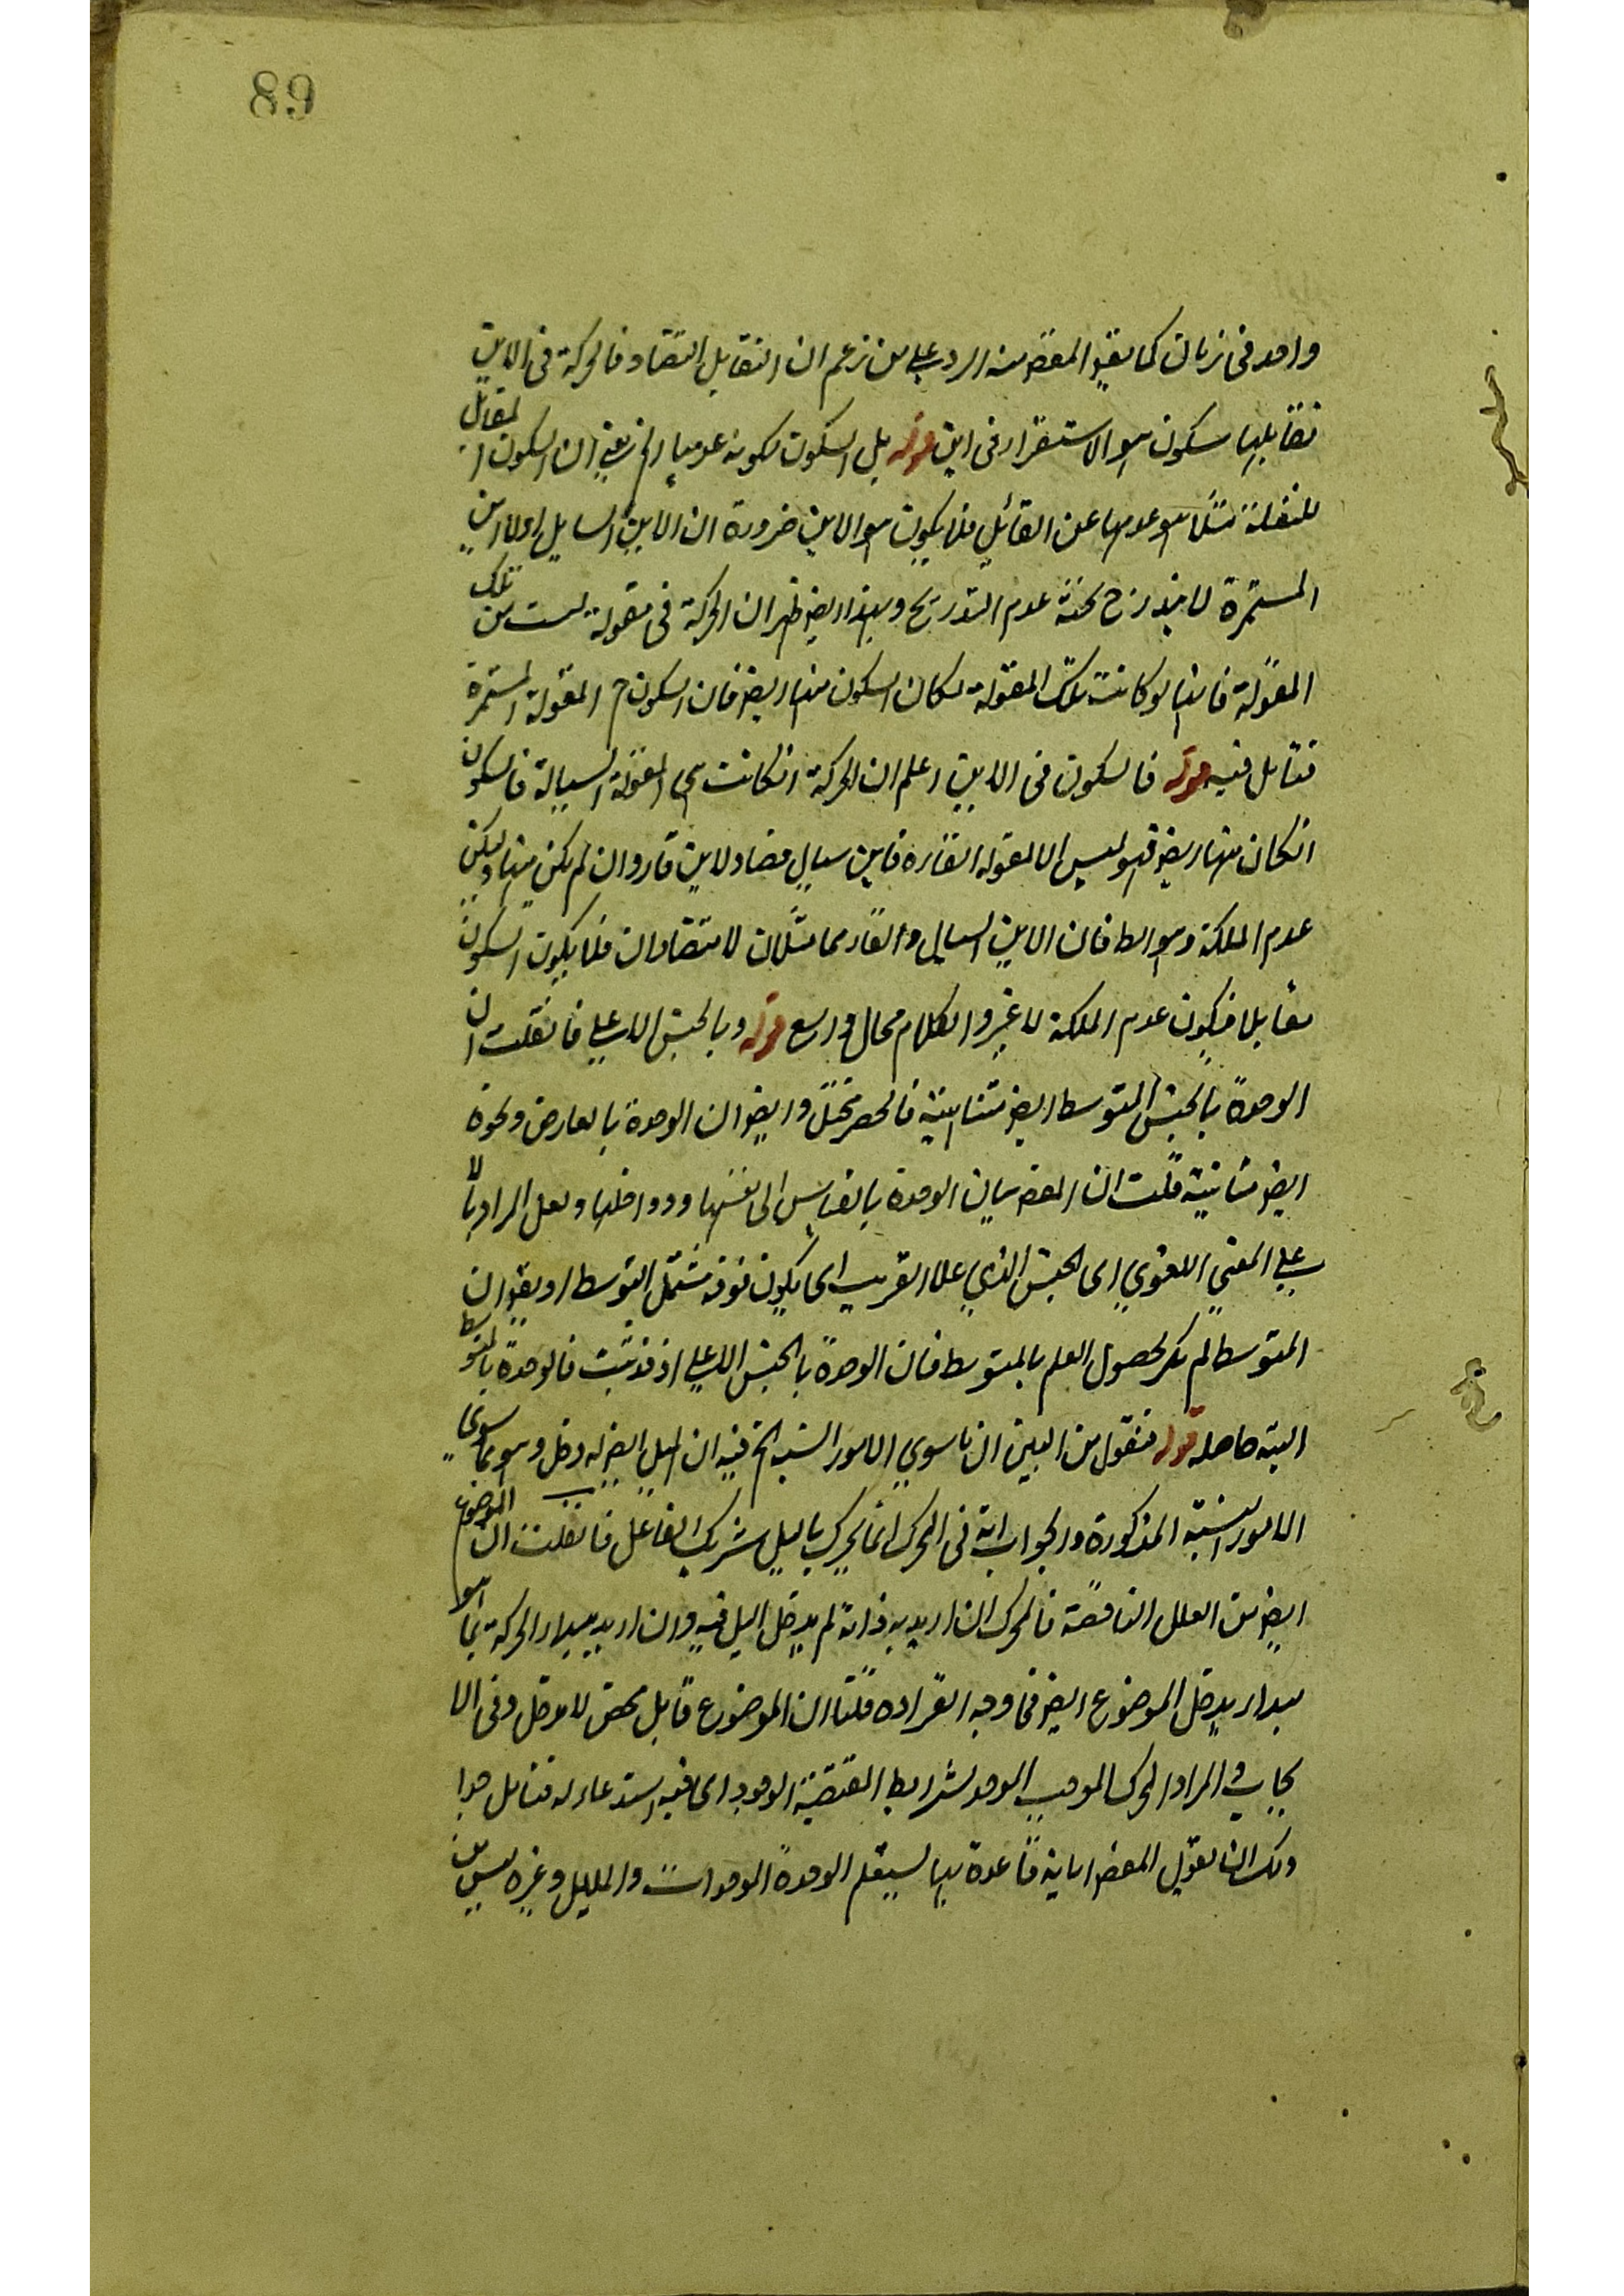 89
واحد فى زمان كما يفيد الغرض منه الرد على من زعم ان التقابل التضاد فالحركة فى الاين
تقابلها سكون هو الاستقرار فى اين قوله بل السكون لكونه عدميا الخ يعنى ان السكون المقابل
للنقلة مثلا هو عدمها عن القابل فلا يكون هو الاين ضرورة ان الاين السيال اولا اين
المستمرة لا يندرج تحته عدم التدريج وبهذا ايضا ظهر ان الحركة فى مقولة ليست من تلك
المقولة فانها لو كانت تلك المقولة لكان السكون منها ايضا فان السكون ح المقولة المستمرة
فتامل فيه قوله فالسكون فى الاين اعلم ان الحركة انكانت هى المقولة السيالة فالسكون
انكان منها ايضا فهو ليس الا المقولة القارة فاين سيال مضاد لاين قار وان لم يكن منها ويكن
عدم الملكة وهو باطل فان الاين السيال والقار مما مثلان لا متضادان فلا يكون السكون
مقابلا فيكون عدم الملكة لا غير والكلام مجال واسع قوله وبالجنس الاعلى فانقلت ان
الوحدة بالجنس المتوسط ايضا متنافية فالحصر مختل وايضا ان الوحدة بالعارض ونحوه
ايضا متنافية قلت ان الغرض بيان الوحدة بالقياس الى نفسها ودواخلها ولعل المراد بالا
على المعنى اللغوي اى الجنس الذي علا القريب اى يكون فوقه فشمل المتوسط او يقال ان
المتوسط لم يذكر لحصول العلم بالمتوسط فان الوحدة بالجنس الاعلى اذ قد ثبت فالوحدة بالمتوسط
البتة حاصلة قوله فنقول من البين ان ما سوى الامور الستة الخ فيه ان الميل ايضا له دخل وهو مما سوى
الامور الستة المذكورة والجواب انه فى المحرك انما يحرك بالميل شريك الفاعل فانقلت ان الموضوع
ايضا من العلل الناقصة فالمحرك ان اريد به ذاته لم يدخل الميل فيه وان اريد به مبداء الحركة بما هو
مبداء يدخل الموضوع ايضا فما وجه افراده قلنا ان الموضوع قابل محض لا دخل له فى الا
يجاب والمراد المحرك الموجب الموجد بشرايط المقتضية الوجود اى ما فيه استدعاء له فتامل جدا
ولك ان تقول الغرض ابانة قاعدة بها يستعلم الوحدة الوحدات والميل وغيره ليس من